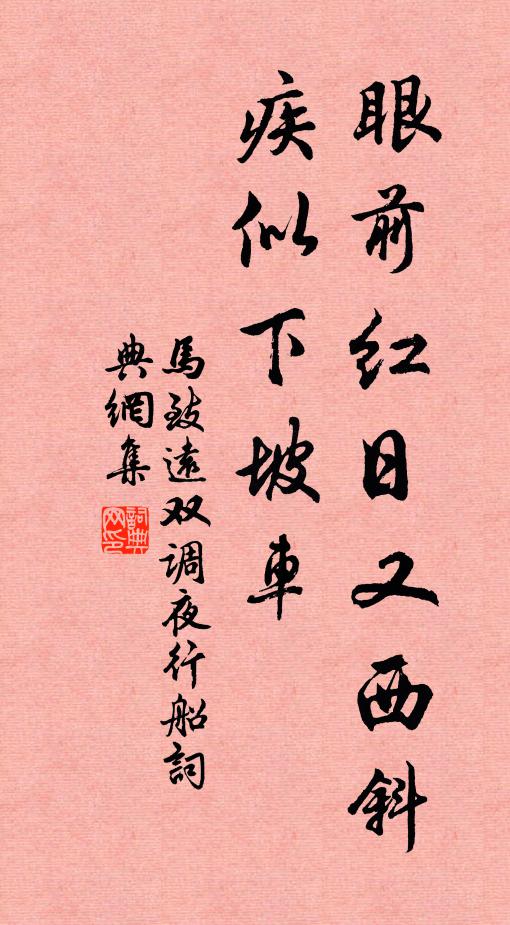 眼前红日又西斜
疾似下坡車
馬致遠双调夜行船詞
典網集
詞典
网印